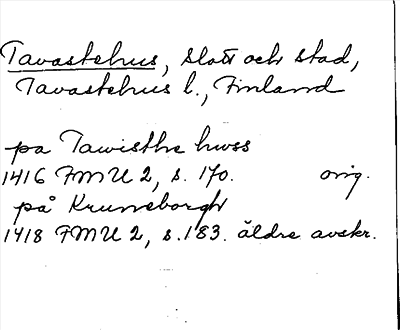 Tavastehus, slott och stad,
Tavastehus l., Finland
pa Tawisthe hwss
1416 FMU 2, s. 170. orig.
på Kruneborgh
1418 FMU 2, s. 183. äldre avskr.